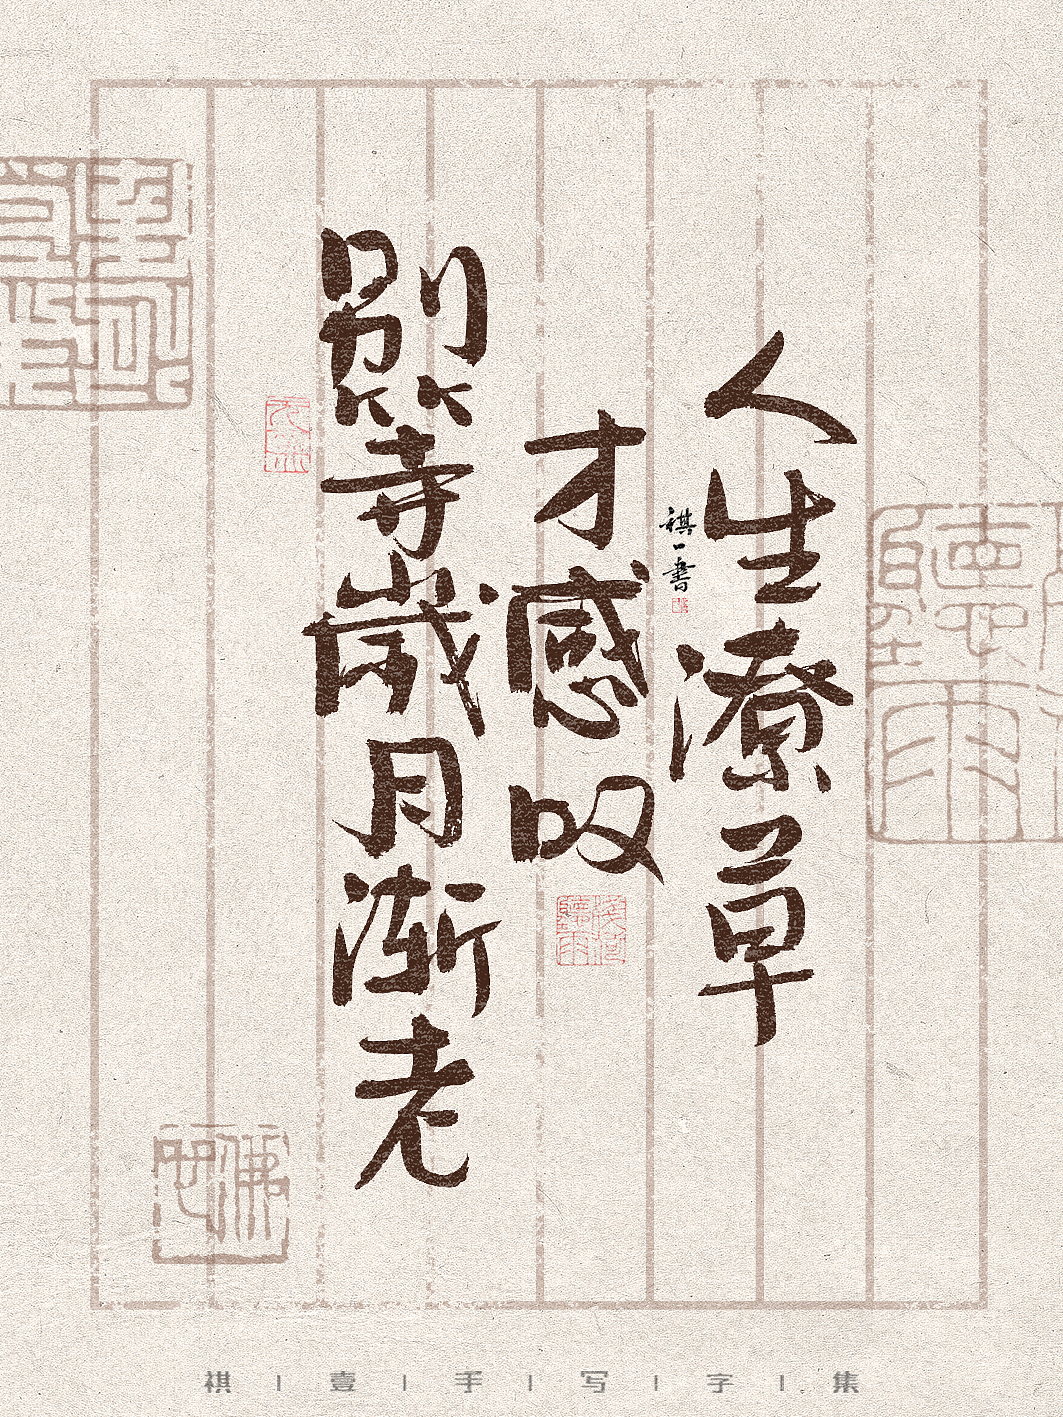 别等歲月渐老
才感叹
人生潦草
祺一書
祺｜壹｜手｜写｜字｜集